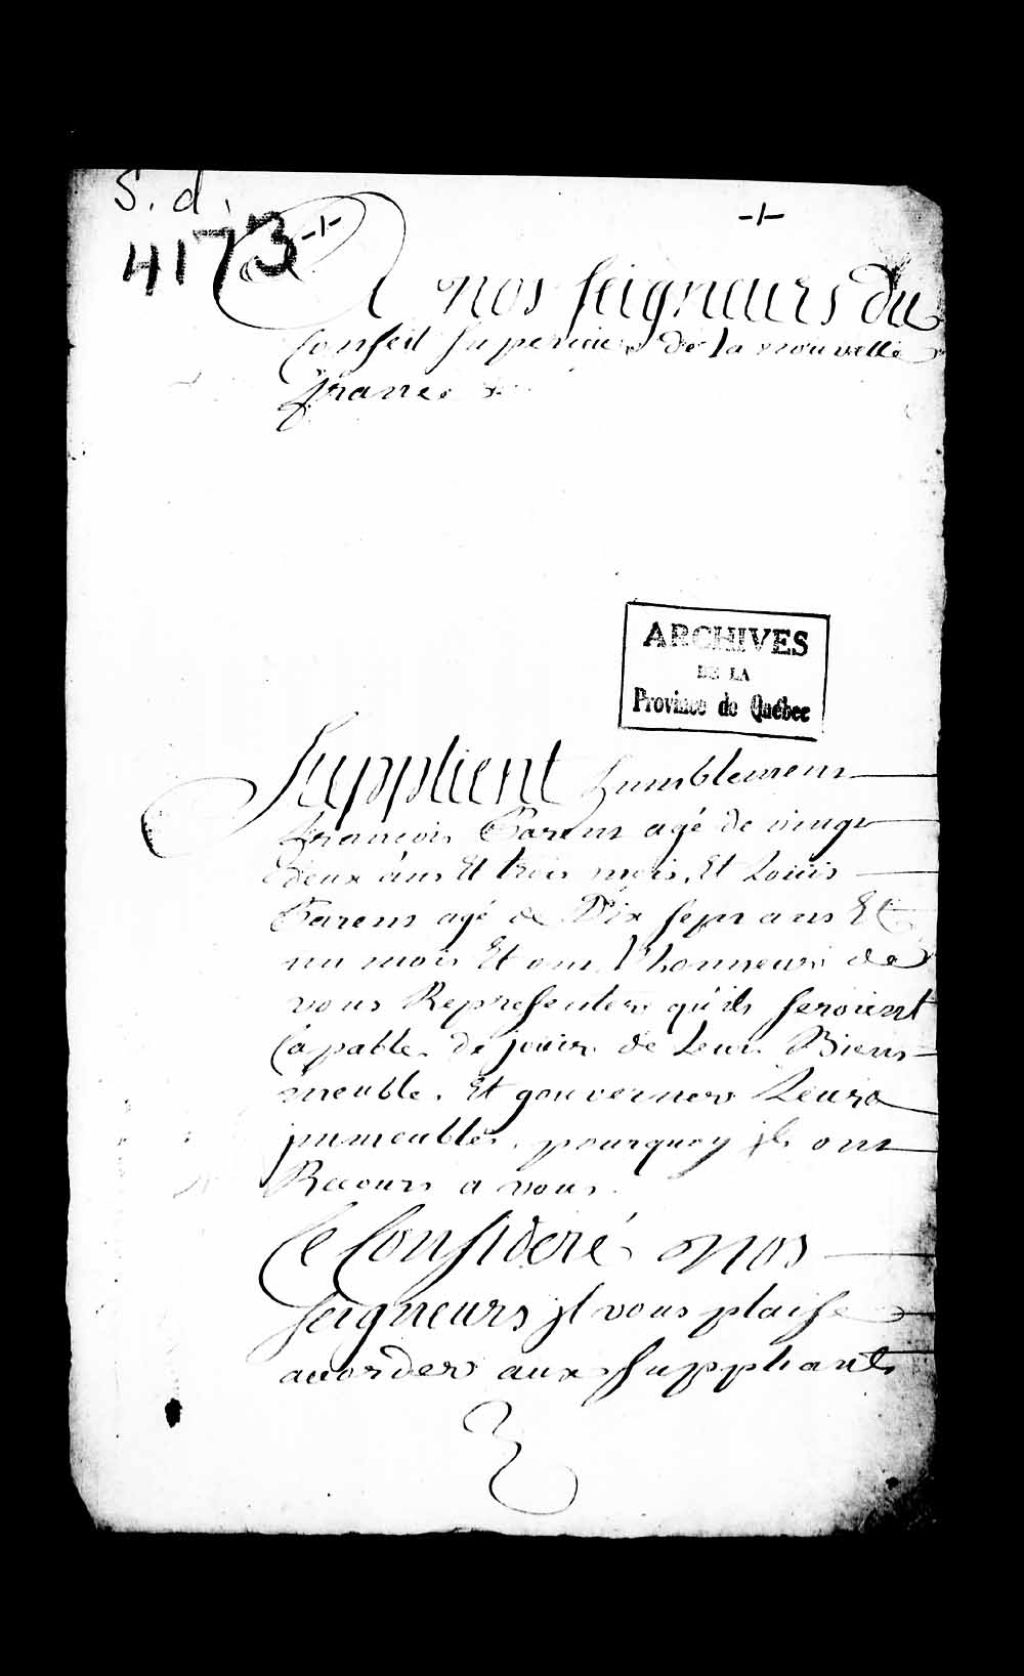 S. d.
4173 -1-
-1-
A nos seigneurs du
Conseil Superieur de la nouvelle
france &
ARCHIVES
DE LA
Province de Québec
Supplient humblement
françois Parent agé de vingt
deux ans Et trois mois, Et Louis
Parent agé de Dix sept ans Et
un mois Et ont l'honneur de
vous Representer qu'ils seroient
Capable de jouir de Leur Biens
meuble. Et gouverner Leurs
jmmeubles, pourquoy jls ont
Recours a vous.
Ce Consideré nos
seigneurs jl vous plaise
accorder aux suppliants